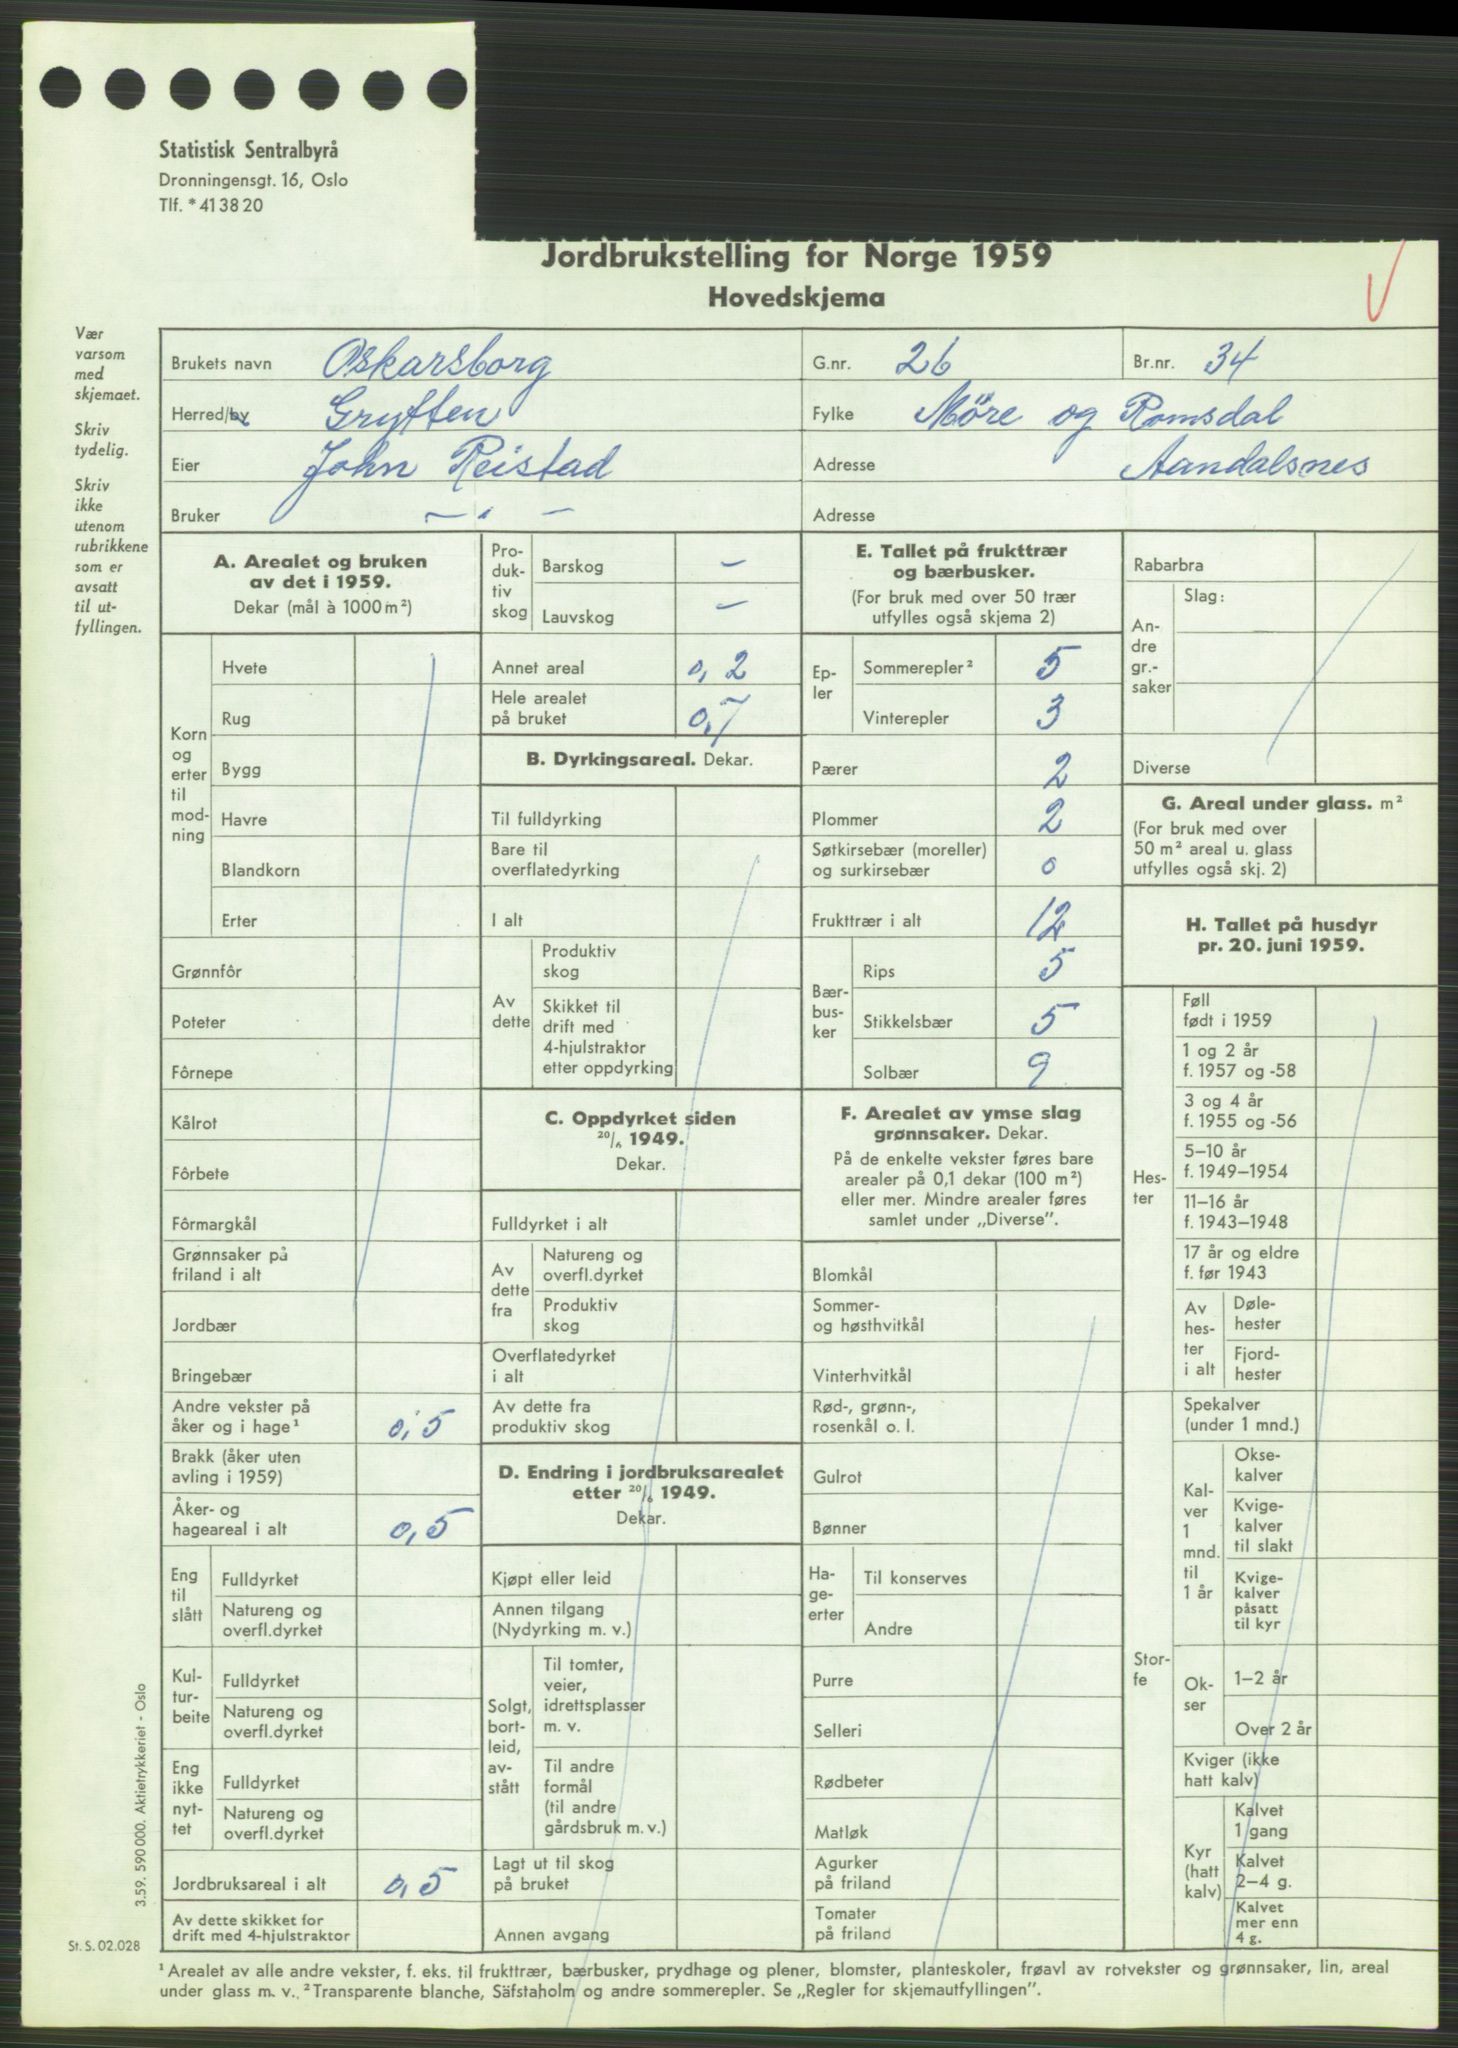 Statistisk Sentralbyrå
Dronningensgt. 16, Oslo
Tlf. * 41 38 20
Jordbrukstelling for Norge 1959
Hovedskjema
Vær
varsom
med
skjemaet.
Skriv
tydelig.
Skriv
ikke
utenom
rubrikkene
som er
avsatt
til ut-
fyllingen.
Brukets navn Oskarsborg G.nr. 26 Br.nr. 34
Herred/by Grytten Fylke Möre og Romsdal
Eier John Reistad Adresse Aandalsnes
Bruker — " — Adresse
A. Arealet og bruken
av det i 1959.
Dekar (mål à 1000 m²)
Korn
og
erter
til
mod-
ning
Hvete
Rug
Bygg
Havre
Blandkorn
Erter
Grønnfôr
Poteter
Fôrnepe
Kålrot
Fôrbete
Fôrmargkål
Grønnsaker på
friland i alt
Jordbær
Bringebær
Andre vekster på
åker og i hage¹ 0,5
Brakk (åker uten
avling i 1959)
Åker- og
hageareal i alt 0,5
Eng
til
slått
Fulldyrket
Natureng og
overfl.dyrket
Kul-
tur-
beite
Fulldyrket
Natureng og
overfl.dyrket
Eng
ikke
nyt-
tet
Fulldyrket
Natureng og
overfl.dyrket
Jordbruksareal i alt 0,5
Av dette skikket for
drift med 4-hjulstraktor
Pro-
duk-
tiv
skog
Barskog —
Lauvskog —
Annet areal 0,2
Hele arealet
på bruket 0,7
B. Dyrkingsareal. Dekar.
Til fulldyrking
Bare til
overflatedyrking
I alt
Av
dette
Produktiv
skog
Skikket til
drift med
4-hjulstraktor
etter oppdyrking
C. Oppdyrket siden
20/6 1949.
Dekar.
Fulldyrket i alt
Av
dette
fra
Natureng og
overfl.dyrket
Produktiv
skog
Overflatedyrket
i alt
Av dette fra
produktiv skog
D. Endring i jordbruksarealet
etter 20/6 1949.
Dekar.
Kjøpt eller leid
Annen tilgang
(Nydyrking m. v.)
Solgt,
bort-
leid,
av-
stått
Til tomter,
veier,
idrettsplasser
m. v.
Til andre
formål
(til andre
gårdsbruk m. v.)
Lagt ut til skog
på bruket
Annen avgang
E. Tallet på frukttrær
og bærbusker.
(For bruk med over 50 trær
utfylles også skjema 2)
Ep-
ler
Sommerepler² 5
Vinterepler 3
Pærer 2
Plommer 2
Søtkirsebær (moreller)
og surkirsebær 0
Frukttrær i alt 12
Bær-
bus-
ker
Rips 5
Stikkelsbær 5
Solbær 9
F. Arealet av ymse slag
grønnsaker. Dekar.
På de enkelte vekster føres bare
arealer på 0,1 dekar (100 m²)
eller mer. Mindre arealer føres
samlet under „Diverse”.
Blomkål
Sommer-
og høsthvitkål
Vinterhvitkål
Rød-, grønn-,
rosenkål o. l.
Gulrot
Bønner
Ha-
ge-
erter
Til konserves
Andre
Purre
Selleri
Rødbeter
Matløk
Agurker
på friland
Tomater
på friland
Rabarbra
An-
dre
gr.-
saker
Slag:
Diverse
G. Areal under glass. m²
(For bruk med over
50 m² areal u. glass
utfylles også skj. 2)
H. Tallet på husdyr
pr. 20. juni 1959.
Hes-
ter
Føll
født i 1959
1 og 2 år
f. 1957 og -58
3 og 4 år
f. 1955 og -56
5–10 år
f. 1949–1954
11–16 år
f. 1943–1948
17 år og eldre
f. før 1943
Av
hes-
ter
i alt
Døle-
hester
Fjord-
hester
Stor-
fe
Spekalver
(under 1 mnd.)
Kal-
ver
1
mnd.
til
1 år
Okse-
kalver
Kvige-
kalver
til slakt
Kvige-
kalver
påsatt
til kyr
Ok-
ser
1–2 år
Over 2 år
Kviger (ikke
hatt kalv)
Kyr
(hatt
kalv)
Kalvet
1 gang
Kalvet
2–4 g.
Kalvet
mer enn
4 g.
3.59. 590 000. Aktietrykkeriet - Oslo
St. S. 02.028
¹ Arealet av alle andre vekster, f. eks. til frukttrær, bærbusker, prydhage og plener, blomster, planteskoler, frøavl av rotvekster og grønnsaker, lin, areal
under glass m. v. ² Transparente blanche, Säfstaholm og andre sommerepler. Se „Regler for skjemautfyllingen”.